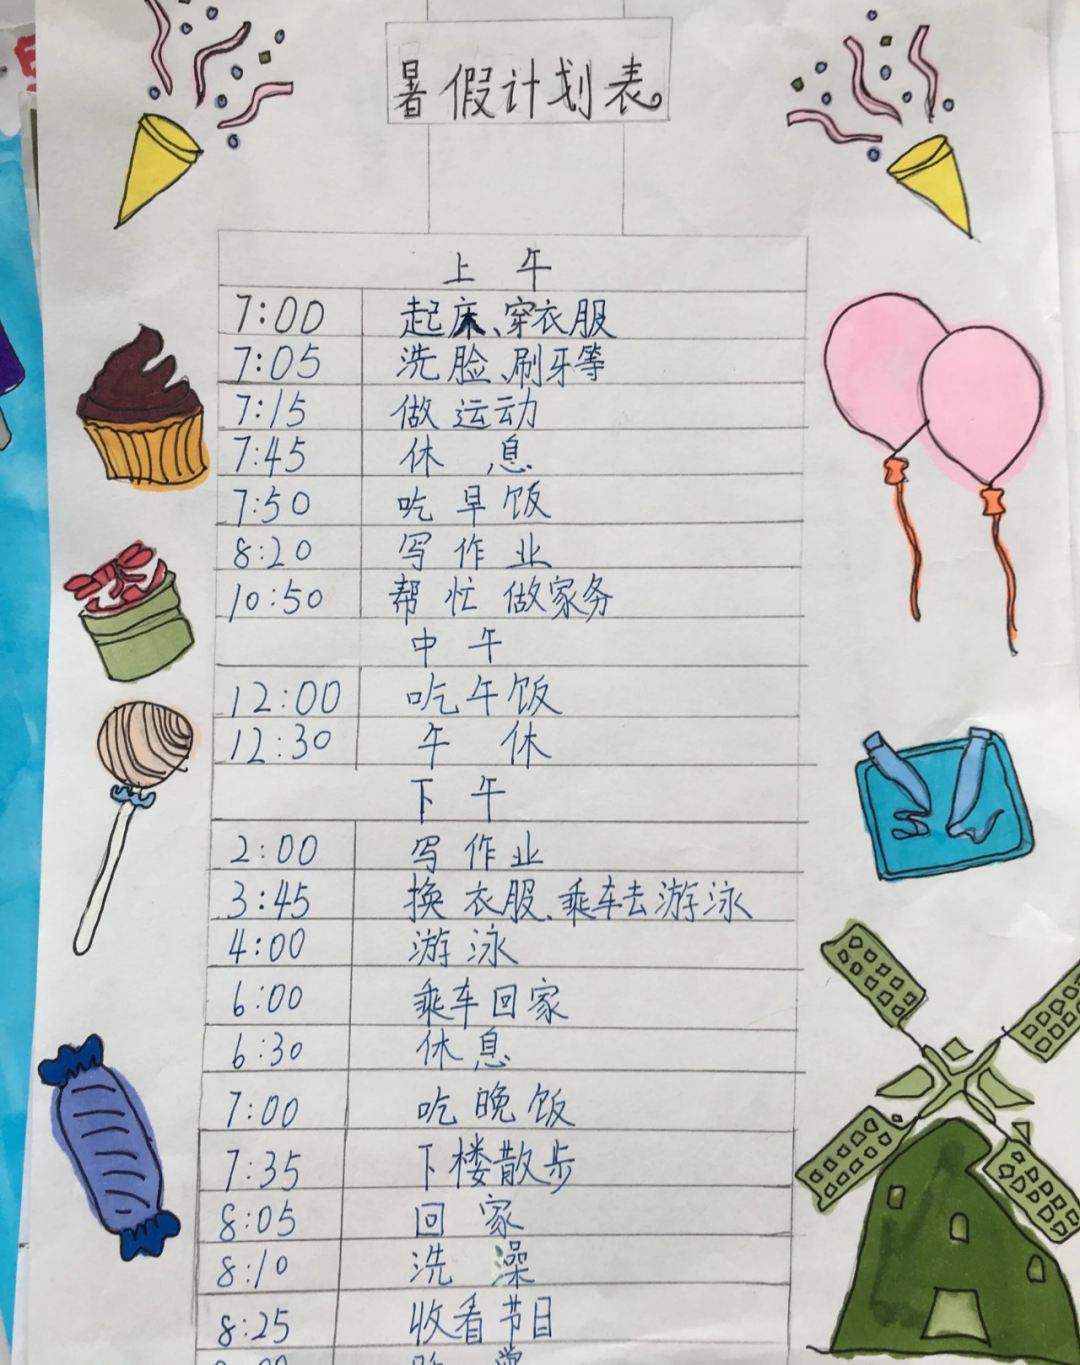 暑假计划表
上午
7:00 起床、穿衣服
7:05 洗脸、刷牙等
7:15 做运动
7:45 休息
7:50 吃早饭
8:20 写作业
10:50 帮忙做家务
中午
12:00 吃午饭
12:30 午休
下午
2:00 写作业
3:45 换衣服、乘车去游泳
4:00 游泳
6:00 乘车回家
6:30 休息
7:00 吃晚饭
7:35 下楼散步
8:05 回家
8:10 洗澡
8:25 收看节目